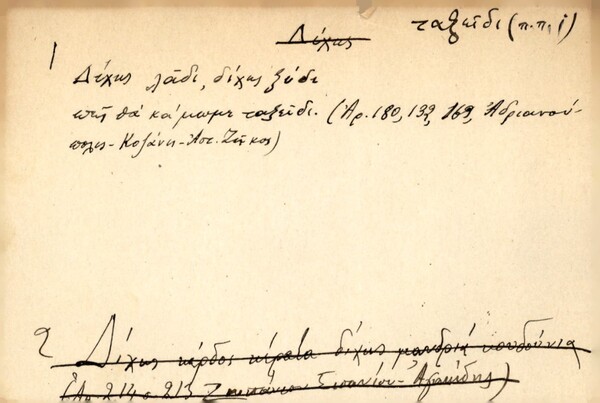 Δίχως
ταξεῖδι (π.π. 1)
1
Δίχως λάδι, δίχως ξύδι
πῶς θὰ κάμωμε ταξεῖδι. (Ἀρ. 180, 132, 169, Ἀδριανού-
πολις - Κοζάνη - Ἀστ. Ζῆκος)
2 Δίχως κέρδος κέρατα δίχως μανδριά κουδούνια
(Ἀρ. 214 σ. 213 Σισανίου -